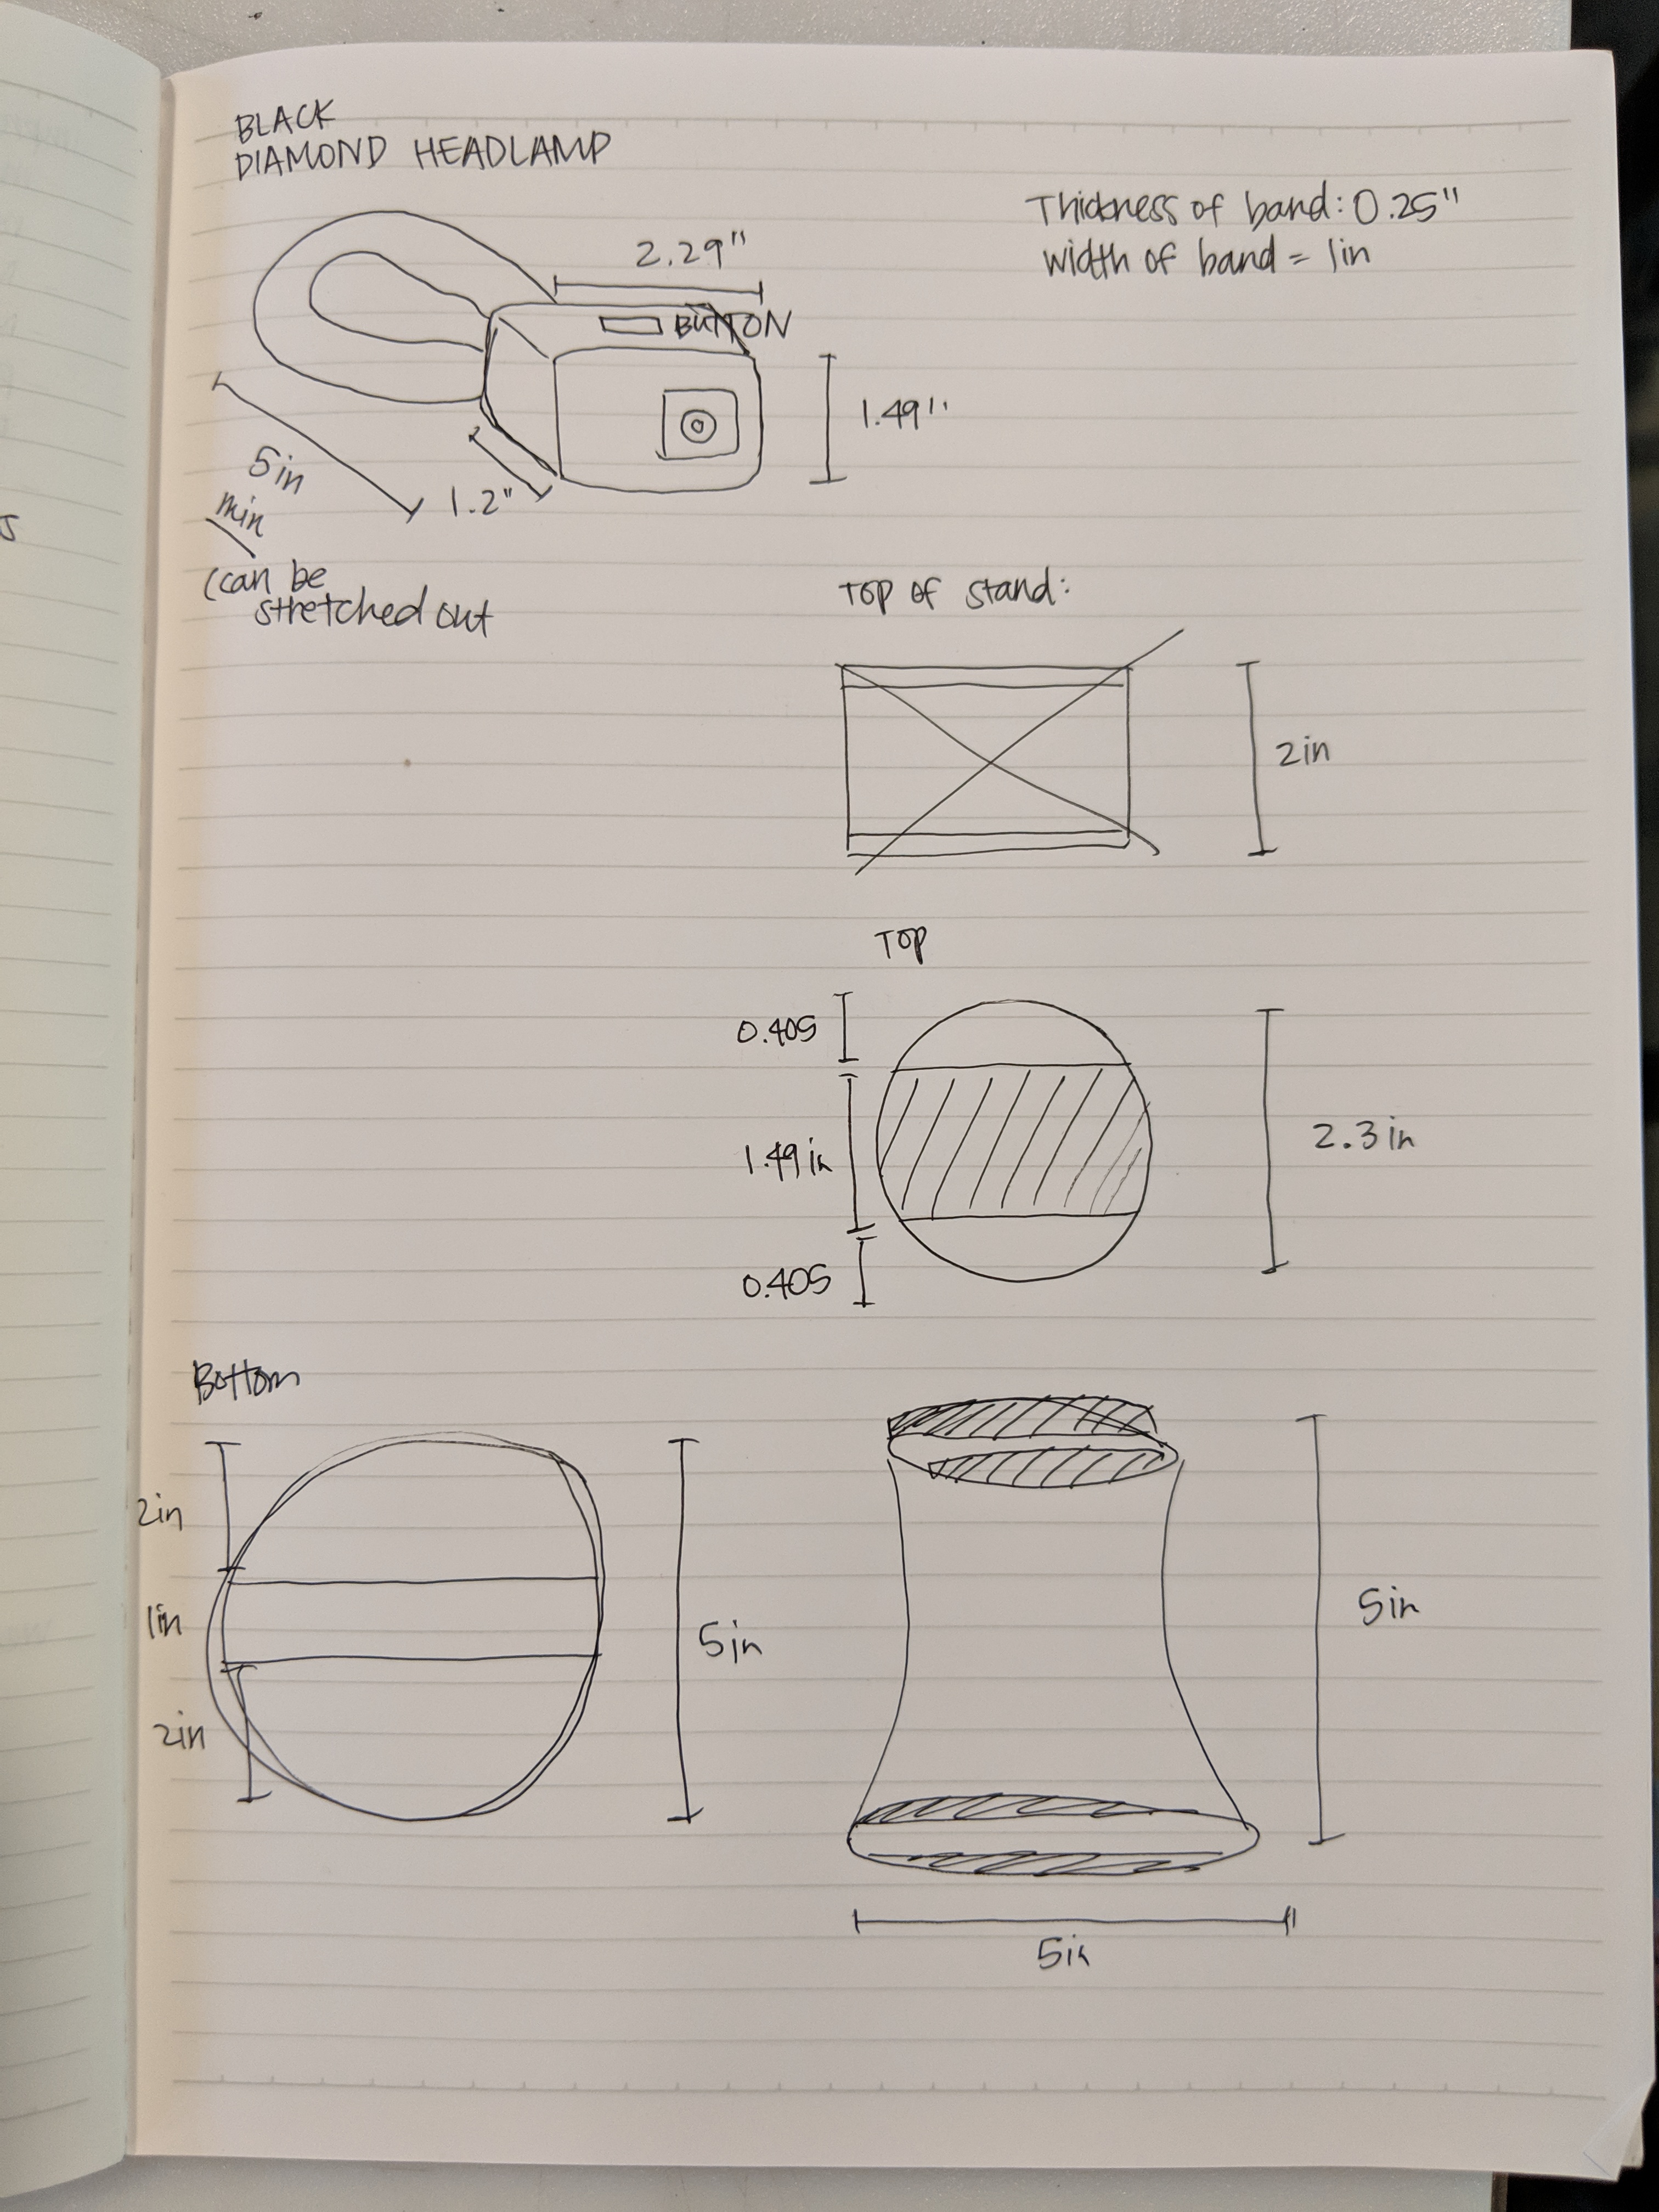 BLACK
DIAMOND HEADLAMP
Thickness of band: 0.25"
width of band = 1in
2.29"
BUTTON
1.49"
5in
min
1.2"
(can be
stretched out
TOP OF stand:
2in
TOP
0.405
1.49in
2.3in
0.405
Bottom
2in
1in
5in
2in
5in
5in